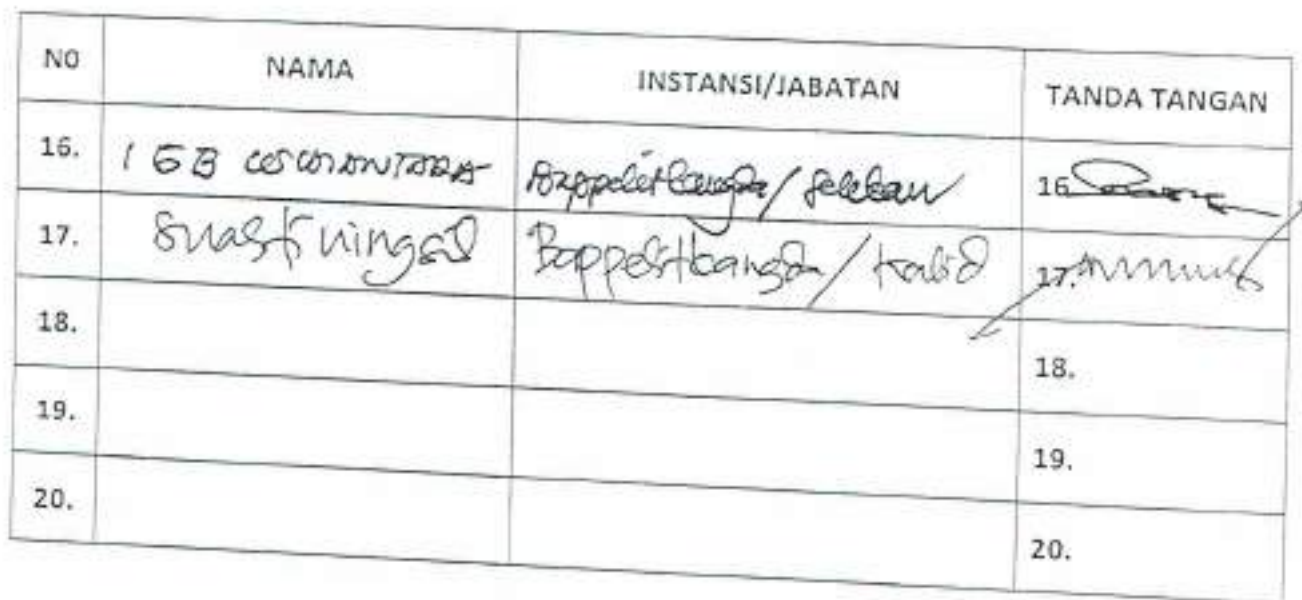 NO NAMA INSTANSI/JABATAN TANDA TANGAN
16. I GB Bappelitbangda/ 16
17. Suastiningsih Bappelitbangda/ Kabid 17.
18. 18.
19. 19.
20. 20.